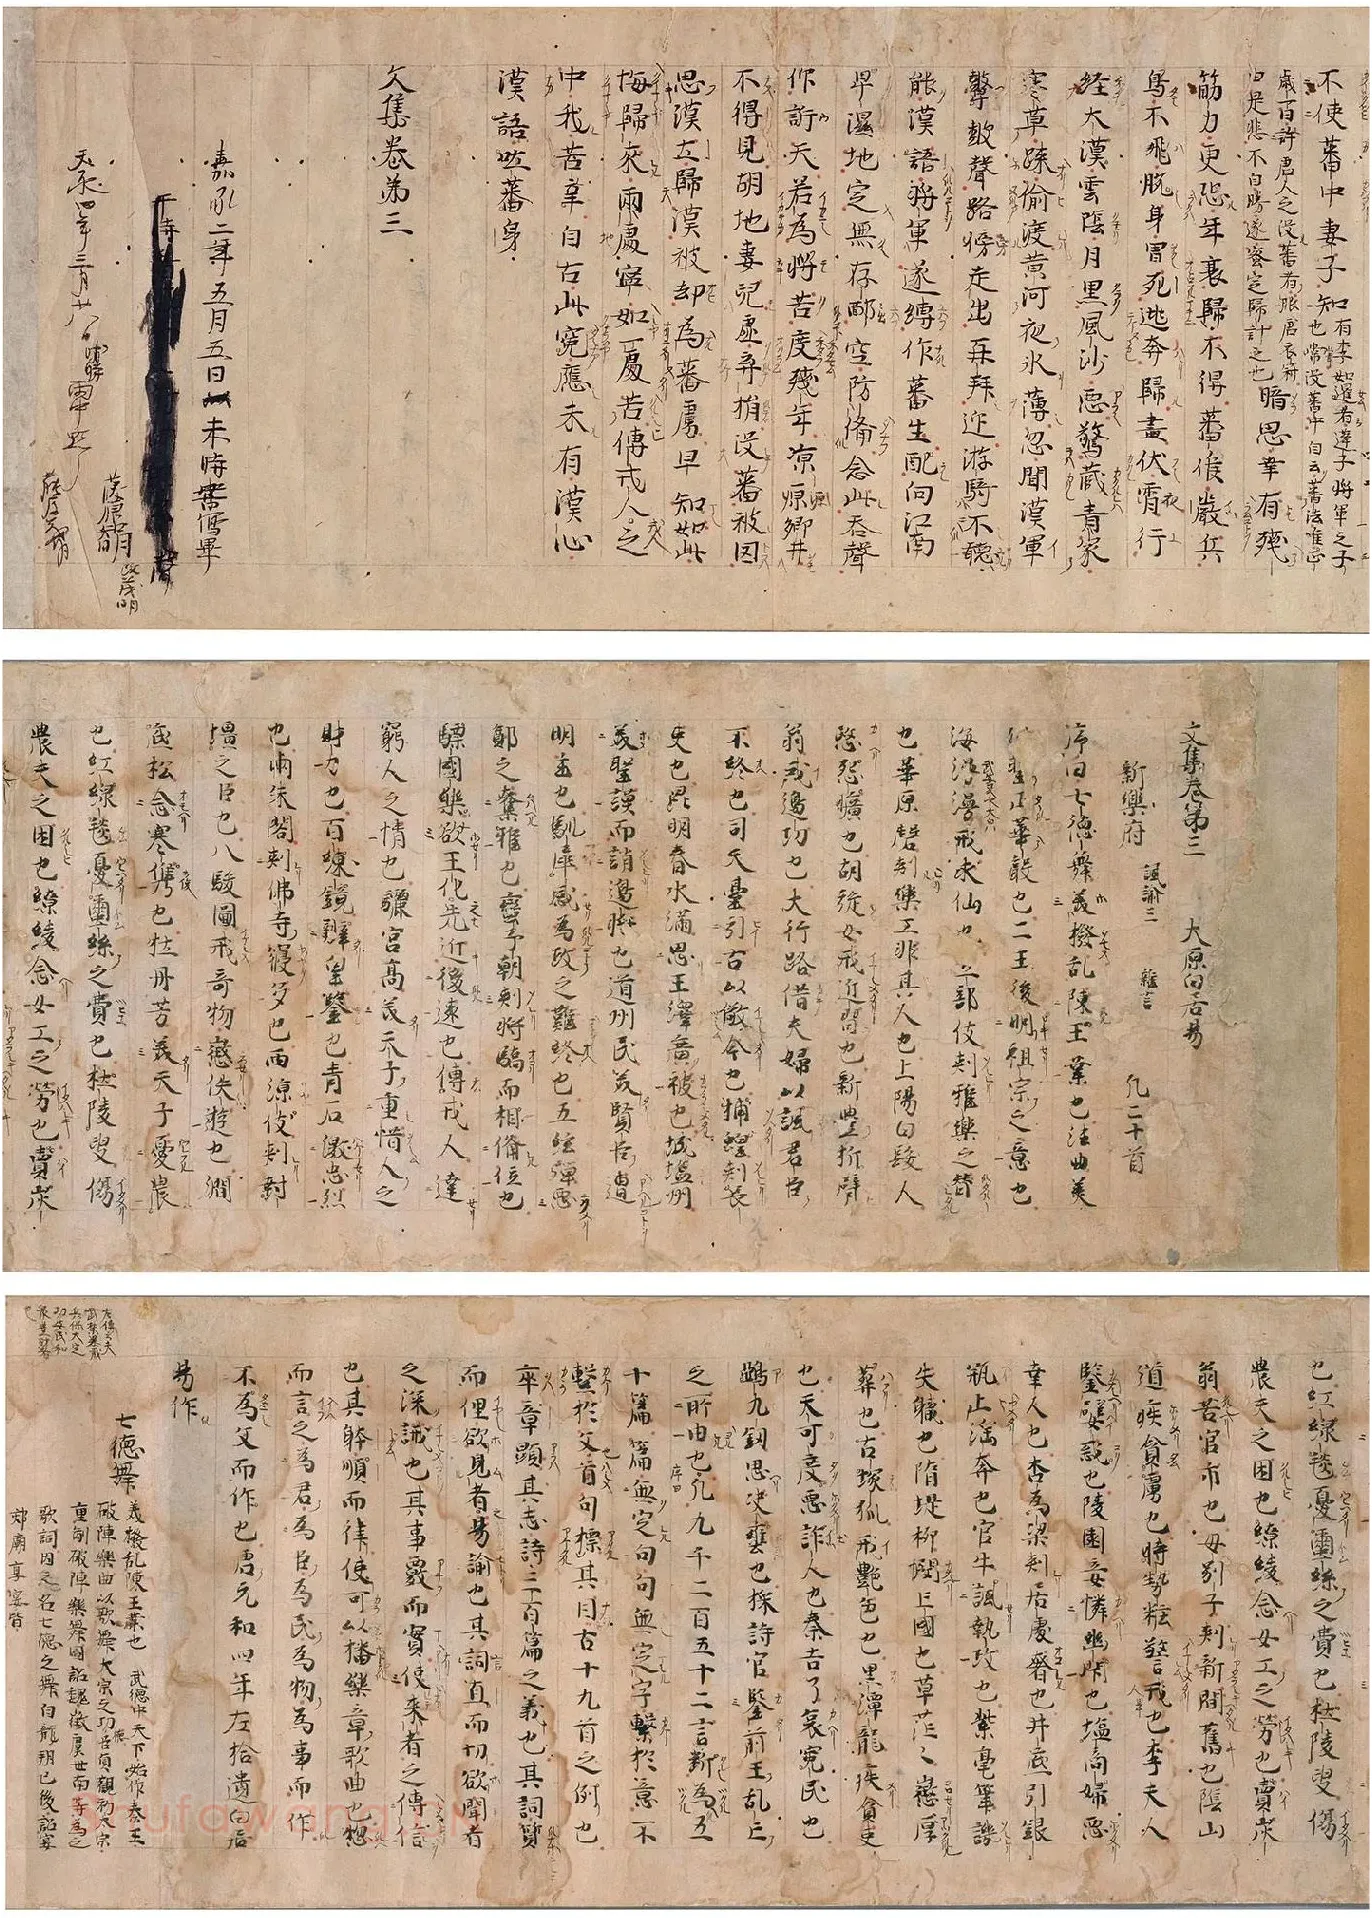 不使蕃中妻子知有李如暹者蓬子將軍之子
也嘗没蕃中自云蕃法唯正
歲百許唐人之没蕃者服唐衣
由是悲不自勝遂密定歸計之也暗思幸有殘
筋力更恐年衰歸不得蕃候嚴兵
鳥不飛脱身冒死逃奔歸晝伏宵行
経大漠雲陰月黒風沙惡驚藏青冢
寒草踈偷渡黄河夜氷薄忽聞漢軍
鼙皷聲路傍走出再拜迎游騎不聽
能漢語將軍遂縛作蕃生配向江南
卑濕地定無存邺空防備念此吞聲
仰訴天若為將苦度殘年凉原鄉井
不得見胡地妻兒虚弃捐没蕃被囚
思漢土歸漢被却為蕃虜早知如此
悔歸來兩處寧如一處苦傳戎人之
中我苦辛自古此寃應未有漢心
漢語吐蕃身
文集卷第三
嘉承二年五月五日未時書寫畢
天永四年三月廿八日
藤原茂明
文集卷第三 大原白居易
新樂府 諷諭三 雜言 凡二十首
序曰七德舞美撥乱陳王業也法曲美
正華聲也二王後明祖宗之意也
海漫漫戒求仙也立部伎刾雅樂之替
也華原磬刾樂工非其人也上陽白髮人
愍怨曠也胡旋女戒近習也新豊折臂
翁戒邊功也大行路借夫婦以諷君臣
不終也司天臺引古以儆今也捕蝗刾長
吏也昆明春水滿思王澤廣被也城塩州
美聖謨而誚邊將也道州民美賢臣遭
明主也馴犀感為政之難終也五絃彈惡
鄭之奪雅也蠻子朝刾將驕而相俻位也
驃國樂欲王化先近後遠也傳戎人達
窮人之情也驪宮高美天子重惜人之
財力也百練鏡辨皇鑒也青石激忠烈
也兩朱閣刾佛寺寖多也西凉伎刾封
壃之臣也八駿圖戒奇物懲佚遊也澗
底松念寒隽也牡丹芳美天子憂農
也紅綠毯憂蠶絲之費也杜陵叟傷
農夫之困也繚綾念女工之勞也賣炭
也紅綠毯憂蠶絲之費也杜陵叟傷
農夫之困也繚綾念女工之勞也賣炭
翁苦官市也母別子刾新間舊也陰山
道疾貪虜也時勢粧警戒也李夫人
鑒嬖惑也陵園妾憐幽閉也塩商婦惡
幸人也杏為梁刾居處奢也井底引銀
瓶止淫奔也官牛諷執政也紫毫筆譏
失職也隋堤柳憫亡國也草茫々懲厚
葬也古塚狐戒艶色也黒潭龍疾貪吏
也天可度惡詐人也秦吉了哀寃民也
鵶九劔思决壅也採詩官鑒前王乱亡
之所由也凡九千二百五十二言断為五
十篇篇無定句句無定字繫於意不
繫於文首句標其目古十九首之例也
卒章顯其志詩三百篇之義也其詞質
而俚欲見者易諭也其詞直而切欲聞者
之深誡也其事覈而實使來者之傳信
也其躰順而律使可以播樂章歌曲也惣
而言之為君為臣為民為物為事而作
不為文而作也唐元和四年左拾遺白居
易作
七德舞 美撥乱陳王業也 武德中天下始作秦王
破陣樂曲以歌舞大宗之功
重制破陣樂舞圖詔魏徵虞世南等為之
歌詞因之名七德之舞自龍朔已後詔
郊廟享宴皆
Shufawang